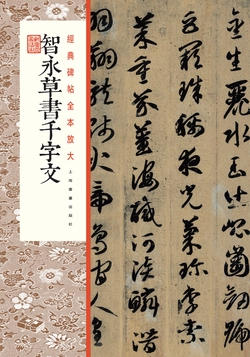 經典碑帖全本放大
智永草書千字文
上海書畫出版社
金生麗水玉出崑崗劍號
巨闕珠稱夜光菓珍李柰
菜重芥薑海鹹河淡鱗潛
羽翔龍師火帝鳥官人皇